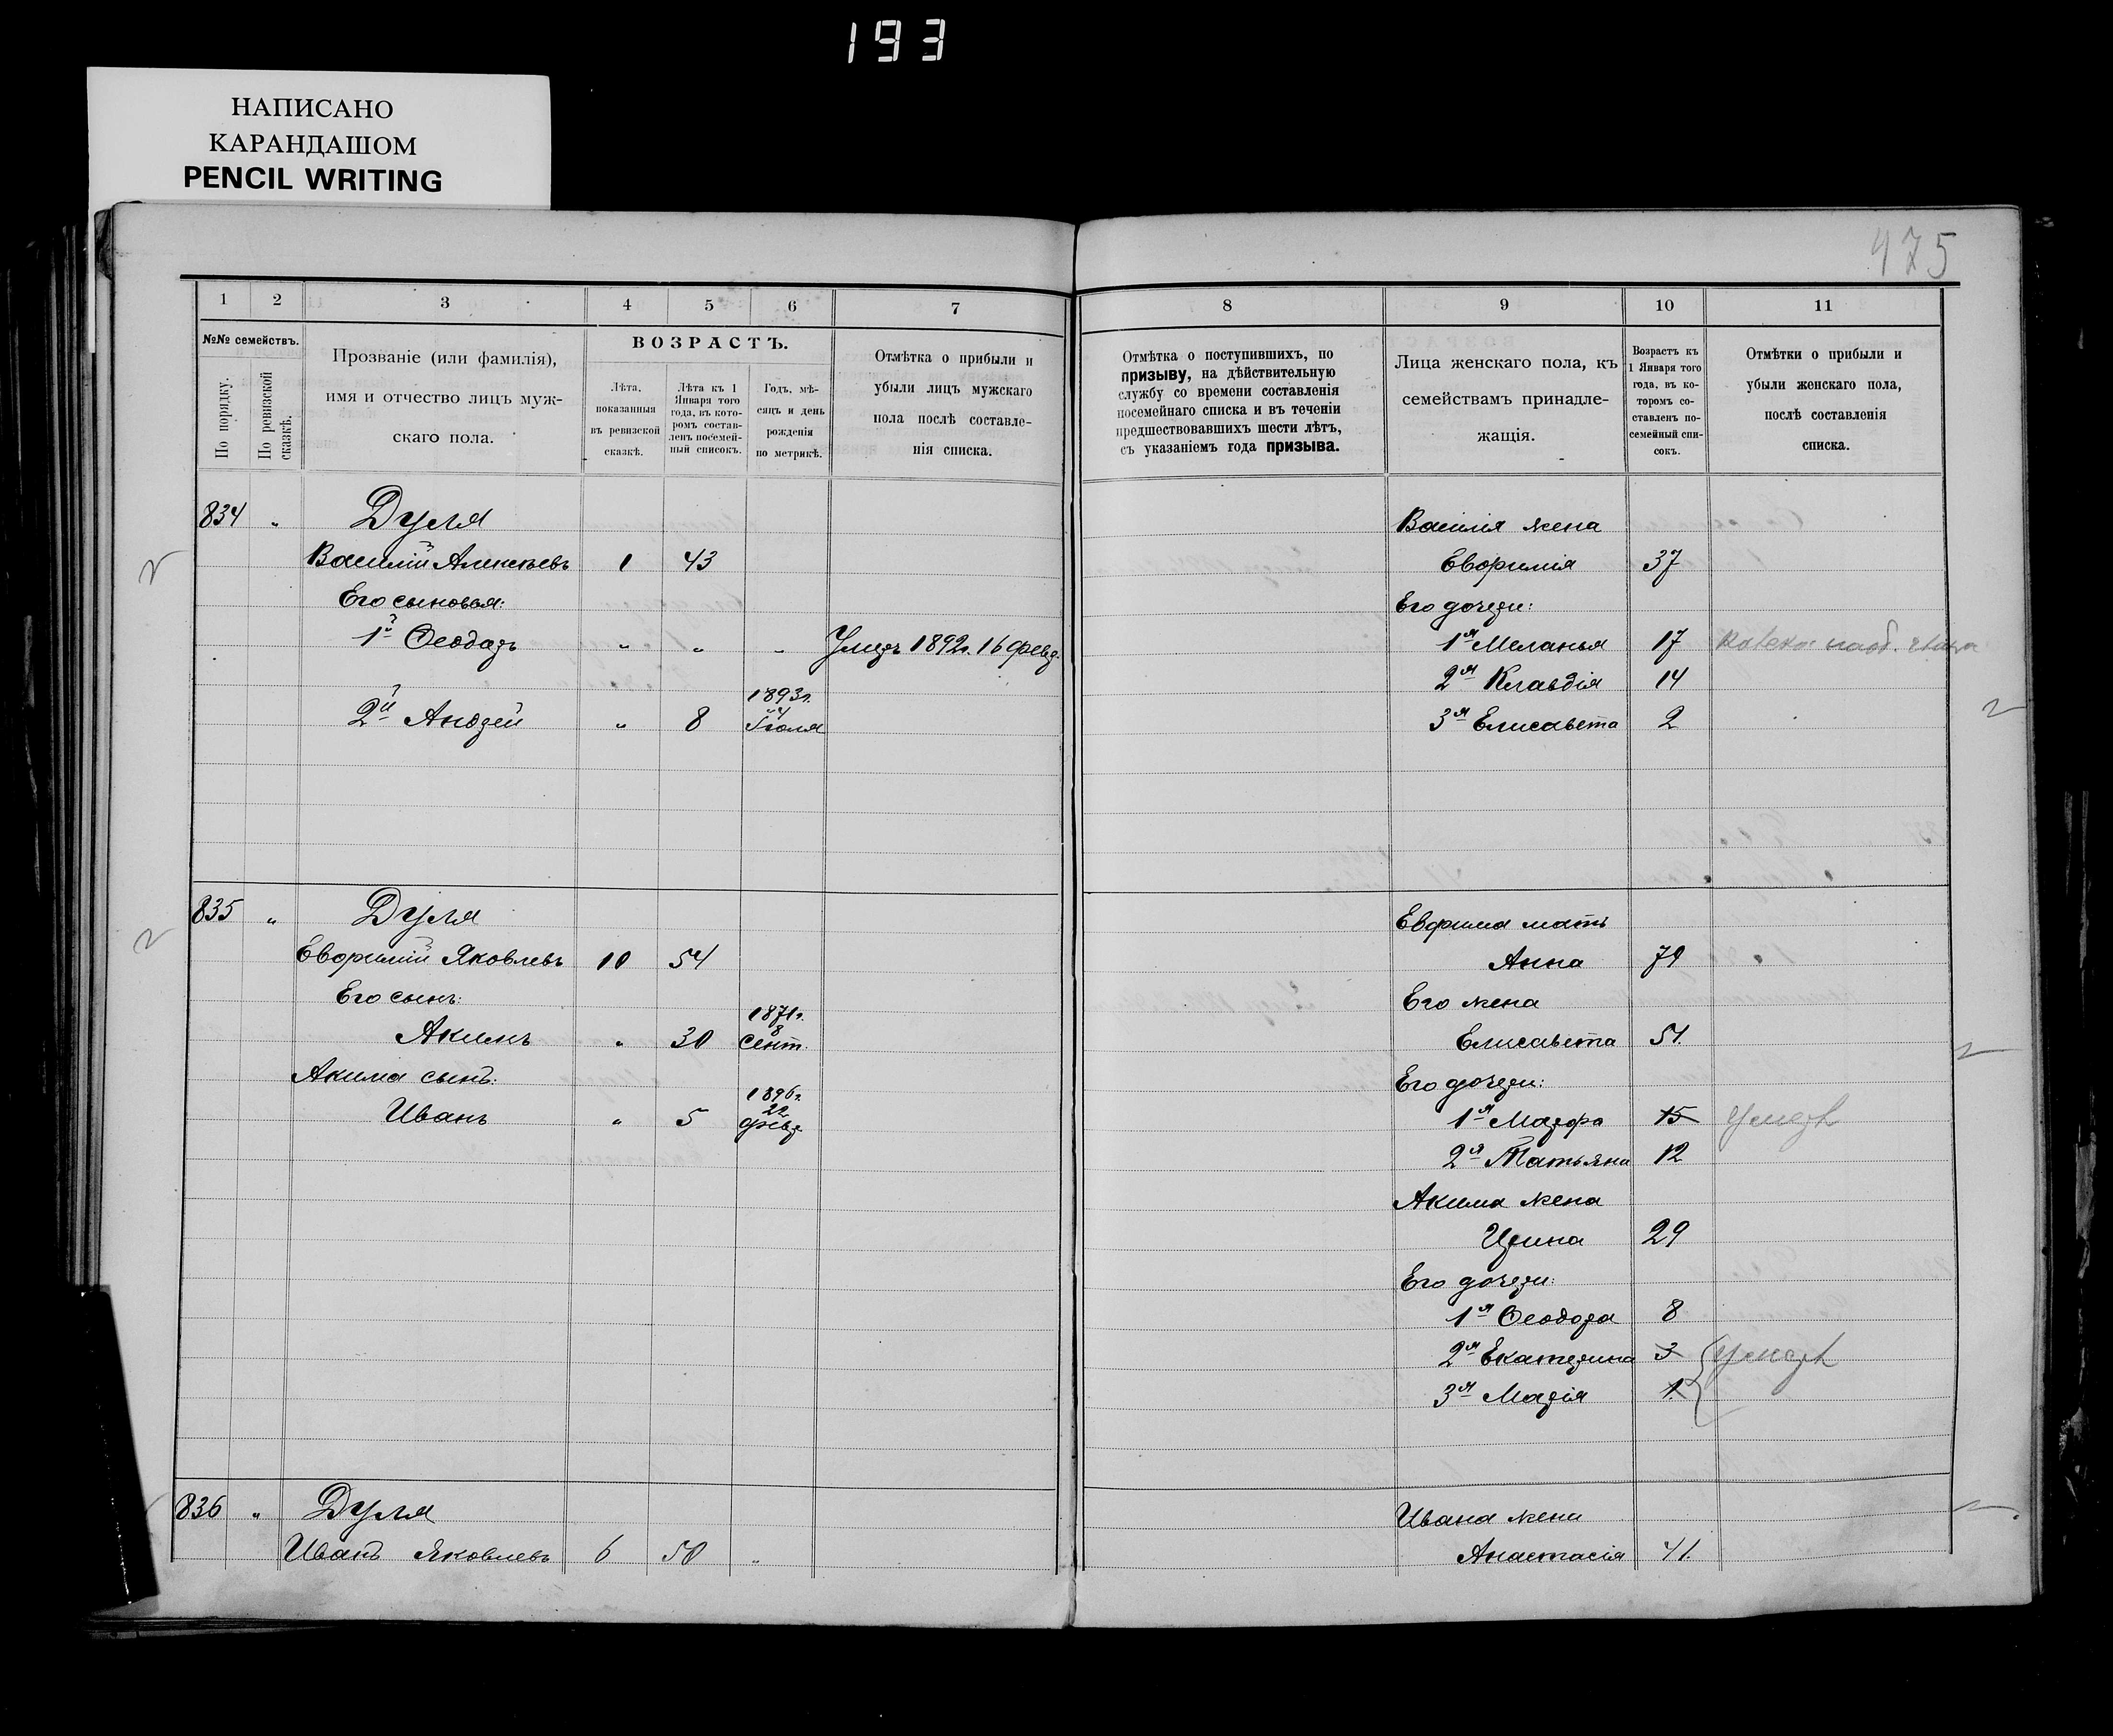 193
НАПИСАНО
КАРАНДАШОМ
PENCIL WRITING
475
1 2 3 4 5 6 7
№№ семействъ.
По порядку.
По ревизской сказкѣ.
Прозваніе (или фамилія),
имя и отчество лицъ муж-
скаго пола.
ВОЗРАСТЪ.
Лѣта,
показанныя
въ ревизской
сказкѣ.
Лѣта къ 1
Января того
года, въ кото-
ромъ состав-
ленъ посемей-
ный списокъ.
Годъ, мѣ-
сяцъ и день
рожденія
по метрикѣ.
Отмѣтка о прибыли и
убыли лицъ мужскаго
пола послѣ составле-
нія списка.
834 „ Дуля
Василій Алексѣевъ 1 43
Его сыновья:
1й Ѳеодоръ „ „ „ Умеръ 1892г. 16 февр.
1893г.
2й Андрей „ 8 Іюля
835 „ Дуля
Евфимій Яковлевъ 10 54
Его сынъ:
1871г.
8
Акимъ „ 30 Сент.
Акима сынъ:
1896г.
22
Иванъ „ 5 февр
836 „ Дуля
Иванъ Яковлевъ 6 50 „
8 9 10 11
Отмѣтка о поступившихъ, по
призыву, на дѣйствительную
службу со времени составленія
посемейнаго списка и въ теченіи
предшествовавшихъ шести лѣтъ,
съ указаніемъ года призыва.
Лица женскаго пола, къ
семействамъ принадле-
жащія.
Возрастъ къ
1 Января того
года, въ ко-
торомъ со-
ставленъ по-
семейный спи-
сокъ.
Отмѣтки о прибыли и
убыли женскаго пола,
послѣ составленія
списка.
Василія жена
Евфимія 37
Его дочери:
1я Меланья 17
2я Клавдія 14
3я Елисавета 2
Евфима мать
Анна 79
Его жена
Елисавета 51.
Его дочери:
1я Марфа 15 Умерла
2я Татьяна 12
Акима жена
Ирина 29
Его дочери:
1я Ѳеодора 8
2я Екатерина 3 Умерла
3я Марія 1.
Ивана жена
Анастасія 41.